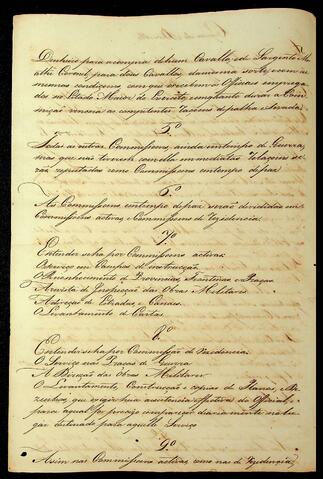 Dinheiro para a compra de hum Cavallo, e de Sargento Mór
athé Coronel para dous Cavallos, da mesma sorte, e com as
mesmas condiçoens com que recebem os Officiaes emprega-
dos no Estado Maior do Exercito, em quanto durar a Com-
missão vencerão as competentes raçoens de palha e sevada.
5.º
Todas as outras Commissoens, ainda em tempo de Guerra,
mas que não tiverem com ella immediatas relaçoens se-
rão reputadas como Commissoens em tempo de paz
6.º
As Commissoens em tempo de paz serão divididas em
Commissoens activas e Commissoens de rezidencia.
7.º
Entender-se-ha por Commissoens activas
O serviço em Campos de instrucção.
O Reconhecimento de Provincias, Fronteiras e Praças
A revista de Inspecção das Obras Militares.
A direcção de Estradas e Canáes.
O Levantamento de Cartas.
8.º
Entender-se-ha por Commissão de rezidencia.
O Serviço nas Praças de Guerra.
A Direcção das Obras Militares.
O Levantamento, Construcção e copias de Planos, e De-
zenhos, que exigir hua assistencia effectiva do Official,
para a qual for precizo comparecer diariamente no lu-
gar destinado para aquelle Serviço
9.º
Assim nas Commissoens activas, como nas de rezidencia,